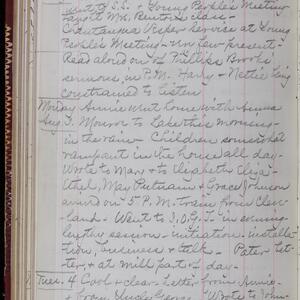 went to S.S. & Young People's Meeting
taught Mrs. class
Chautauqua Vesper Service at Young
People's Meeting - few present -
Read aloud one of Phillips Brooks'
sermons in P.M. Harry & Nettie being
constrained to listen
Monday Annie went home with Anna
Aug. 3. Monroe to Lake this morning -
in the rain - Children somewhat
rampant in the house all day -
Wrote to Mary & to Elizabeth Eliza-
Ethel, May Putnam & Grace Johnson
arrived on 5 P.M. train from Cleve-
land - Went to I.O.G.T. in evening -
lengthy session - initiation - installa-
tion, business & talk - Pater
at mill part of day -
Tues. 4 Cool & clear - Letter from Annie
& from Uncle George - Wrote to John